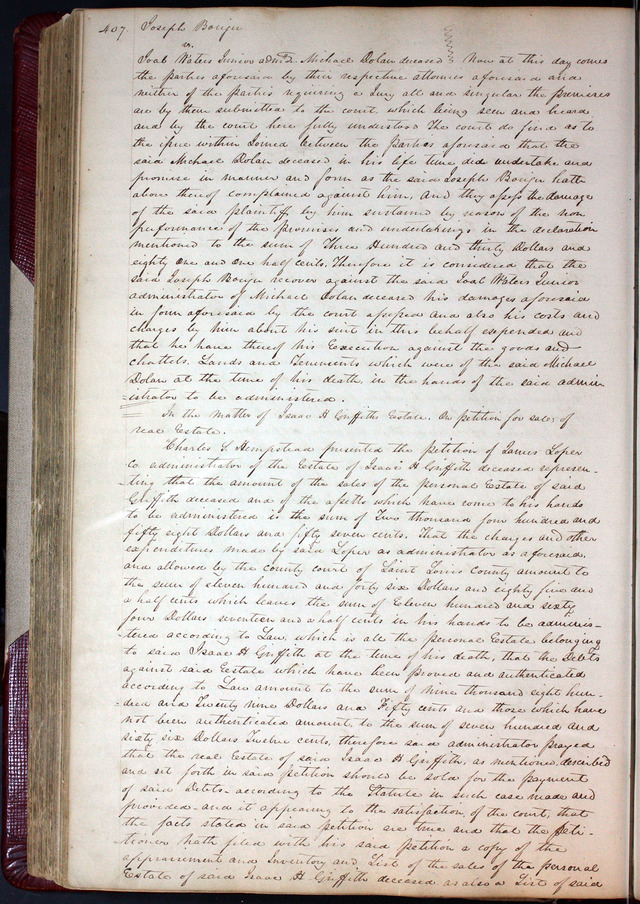 407. Joseph Bouju
vs.
Joab Waters Junior adm'r Michael Dolan deceased } Now at this day comes
the parties aforesaid by their respective attornies aforesaid and
neither of the parties requiring a Jury all and singular the premises
are by them submitted to the court which being seen and heard
and by the court here fully understood The court do find as to
the issue within Joined between the parties aforesaid that the
said Michael Dolan deceased in his life time did undertake and
promise in manner and form as the said Joseph Bouju hath
above thereof complained against him, and they assess the damage
of the said plaintiff by him sustained by reason of the non
performance of the promises and undertakings in the declaration
mentioned to the sum of Three Hundred and thirty Dollars and
eighty one and one half cents. Therefore it is considered that the
said Joseph Bouju recover against the said Joab Waters Junior
administrator of Michael Dolan deceased his damages aforesaid
in form aforesaid by the court assessed and also his costs and
charges by him about his suit in this behalf expended and
that he have thereof his Execution against the goods and
chattels. Lands and Tenements which were of the said Michael
Dolan at the time of his death in the hands of the said admin
-istrator to be administered.
In the matter of Isaac H Griffiths Estate. On petition for sales of
real Estate.
Charles S. Hempstead presented the petition of James Loper
co administrator of the Estate of Isaac H Griffith deceased represen-
-ting that the amount of the sales of the personal Estate of said
Griffith deceased and of the assetts which have come to his hands
to be administered is the sum of Two thousand four hundred and
fifty eight Dollars and fifty seven cents. That the charges and other
expenditures made by said Loper as administrator as aforesaid,
and allowed by the county court of Saint Louis County amount to
the sum of eleven hundred and forty six Dollars and eighty five and
a half cents which leaves the sum of Eleven hundred and sixty
four Dollars seventeen and a half cents in his hands to be adminis-
-tered according to Law. which is all the personal Estate belonging
to said Isaac H Griffith at the time of his death, that the Debts
against said Estate which have been proved and authenticated
according to Law amount to the sum of nine thousand eight hun-
-dred and Twenty nine Dollars and Fifty cents and those which have
not been authenticated amount, to the sum of seven hundred and
sixty six Dollars Twelve cents, therefore said administrator prayed
that the real Estate of said Isaac H Griffith, as mentioned, described
and set forth in said petition should be sold for the payment
of said Debts according to the Statute in such case made and
provided. and it appearing to the satisfaction of the court, that
the facts stated in said petition are true and that the Peti-
-tioner hath filed with his said petition a copy of the
appraisement and Inventory and List of the sales of the personal
Estate of said Isaac H Griffith deceased as also a List of said